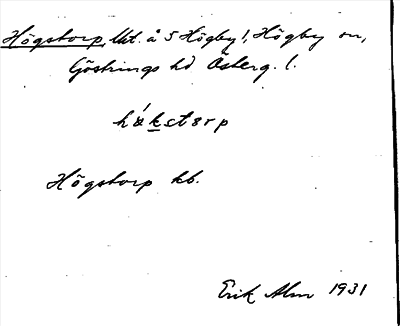 Högstorp, Utt. å S Högby!, Högby sn,
Göstrings hd Österg. l.
hákstorp
Högstorp kb.
Erik Alm 1931